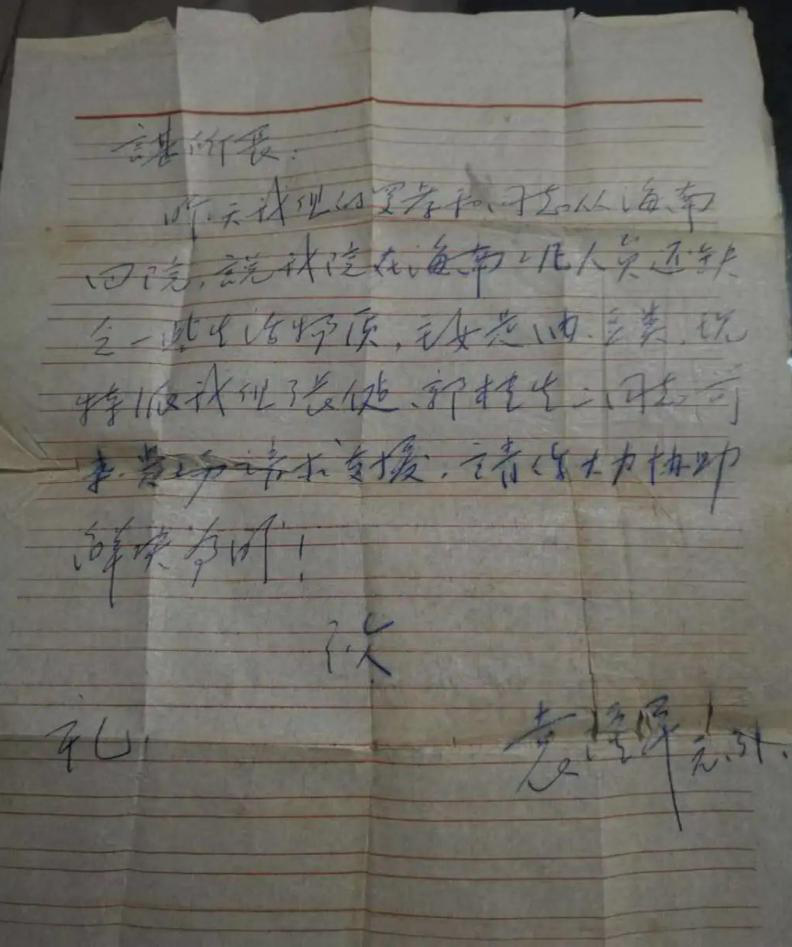 谌所长：
昨天我组的罗孝和同志从海南
回院，说我院在海南工作人员还缺
乏一些生活物质，主要是油、豆类，现
特派我组张健、郭桂生二同志前
来贵场请求支援，请你大力协助
解决为盼！
致
礼！ 袁隆平 元.31.